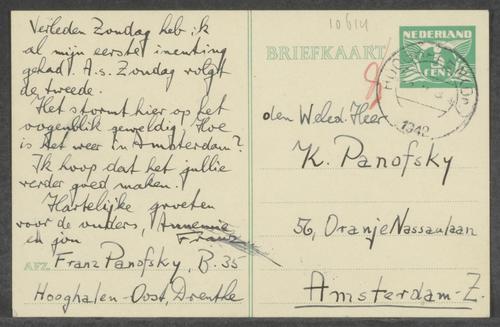 Verleden Zondag heb ik
al mijn eerste inenting
gehad. A.s. Zondag volgt
de tweede.
Het stormt hier op het
oogenblik geweldig, Hoe
is het weer in Amsterdam?
Ik hoop dat het jullie
verder goed maken.
Hartelijke groeten
voor de ouders, Annemie
en jou Franz
AFZ. Franz Panofsky, B. 35
Hooghalen-Oost, Drenthe
10614
BRIEFKAART
NEDERLAND
5
CENT
1942
den Weled. Heer
K. Panofsky
56, Oranje Nassaulaan
Amsterdam-Z.